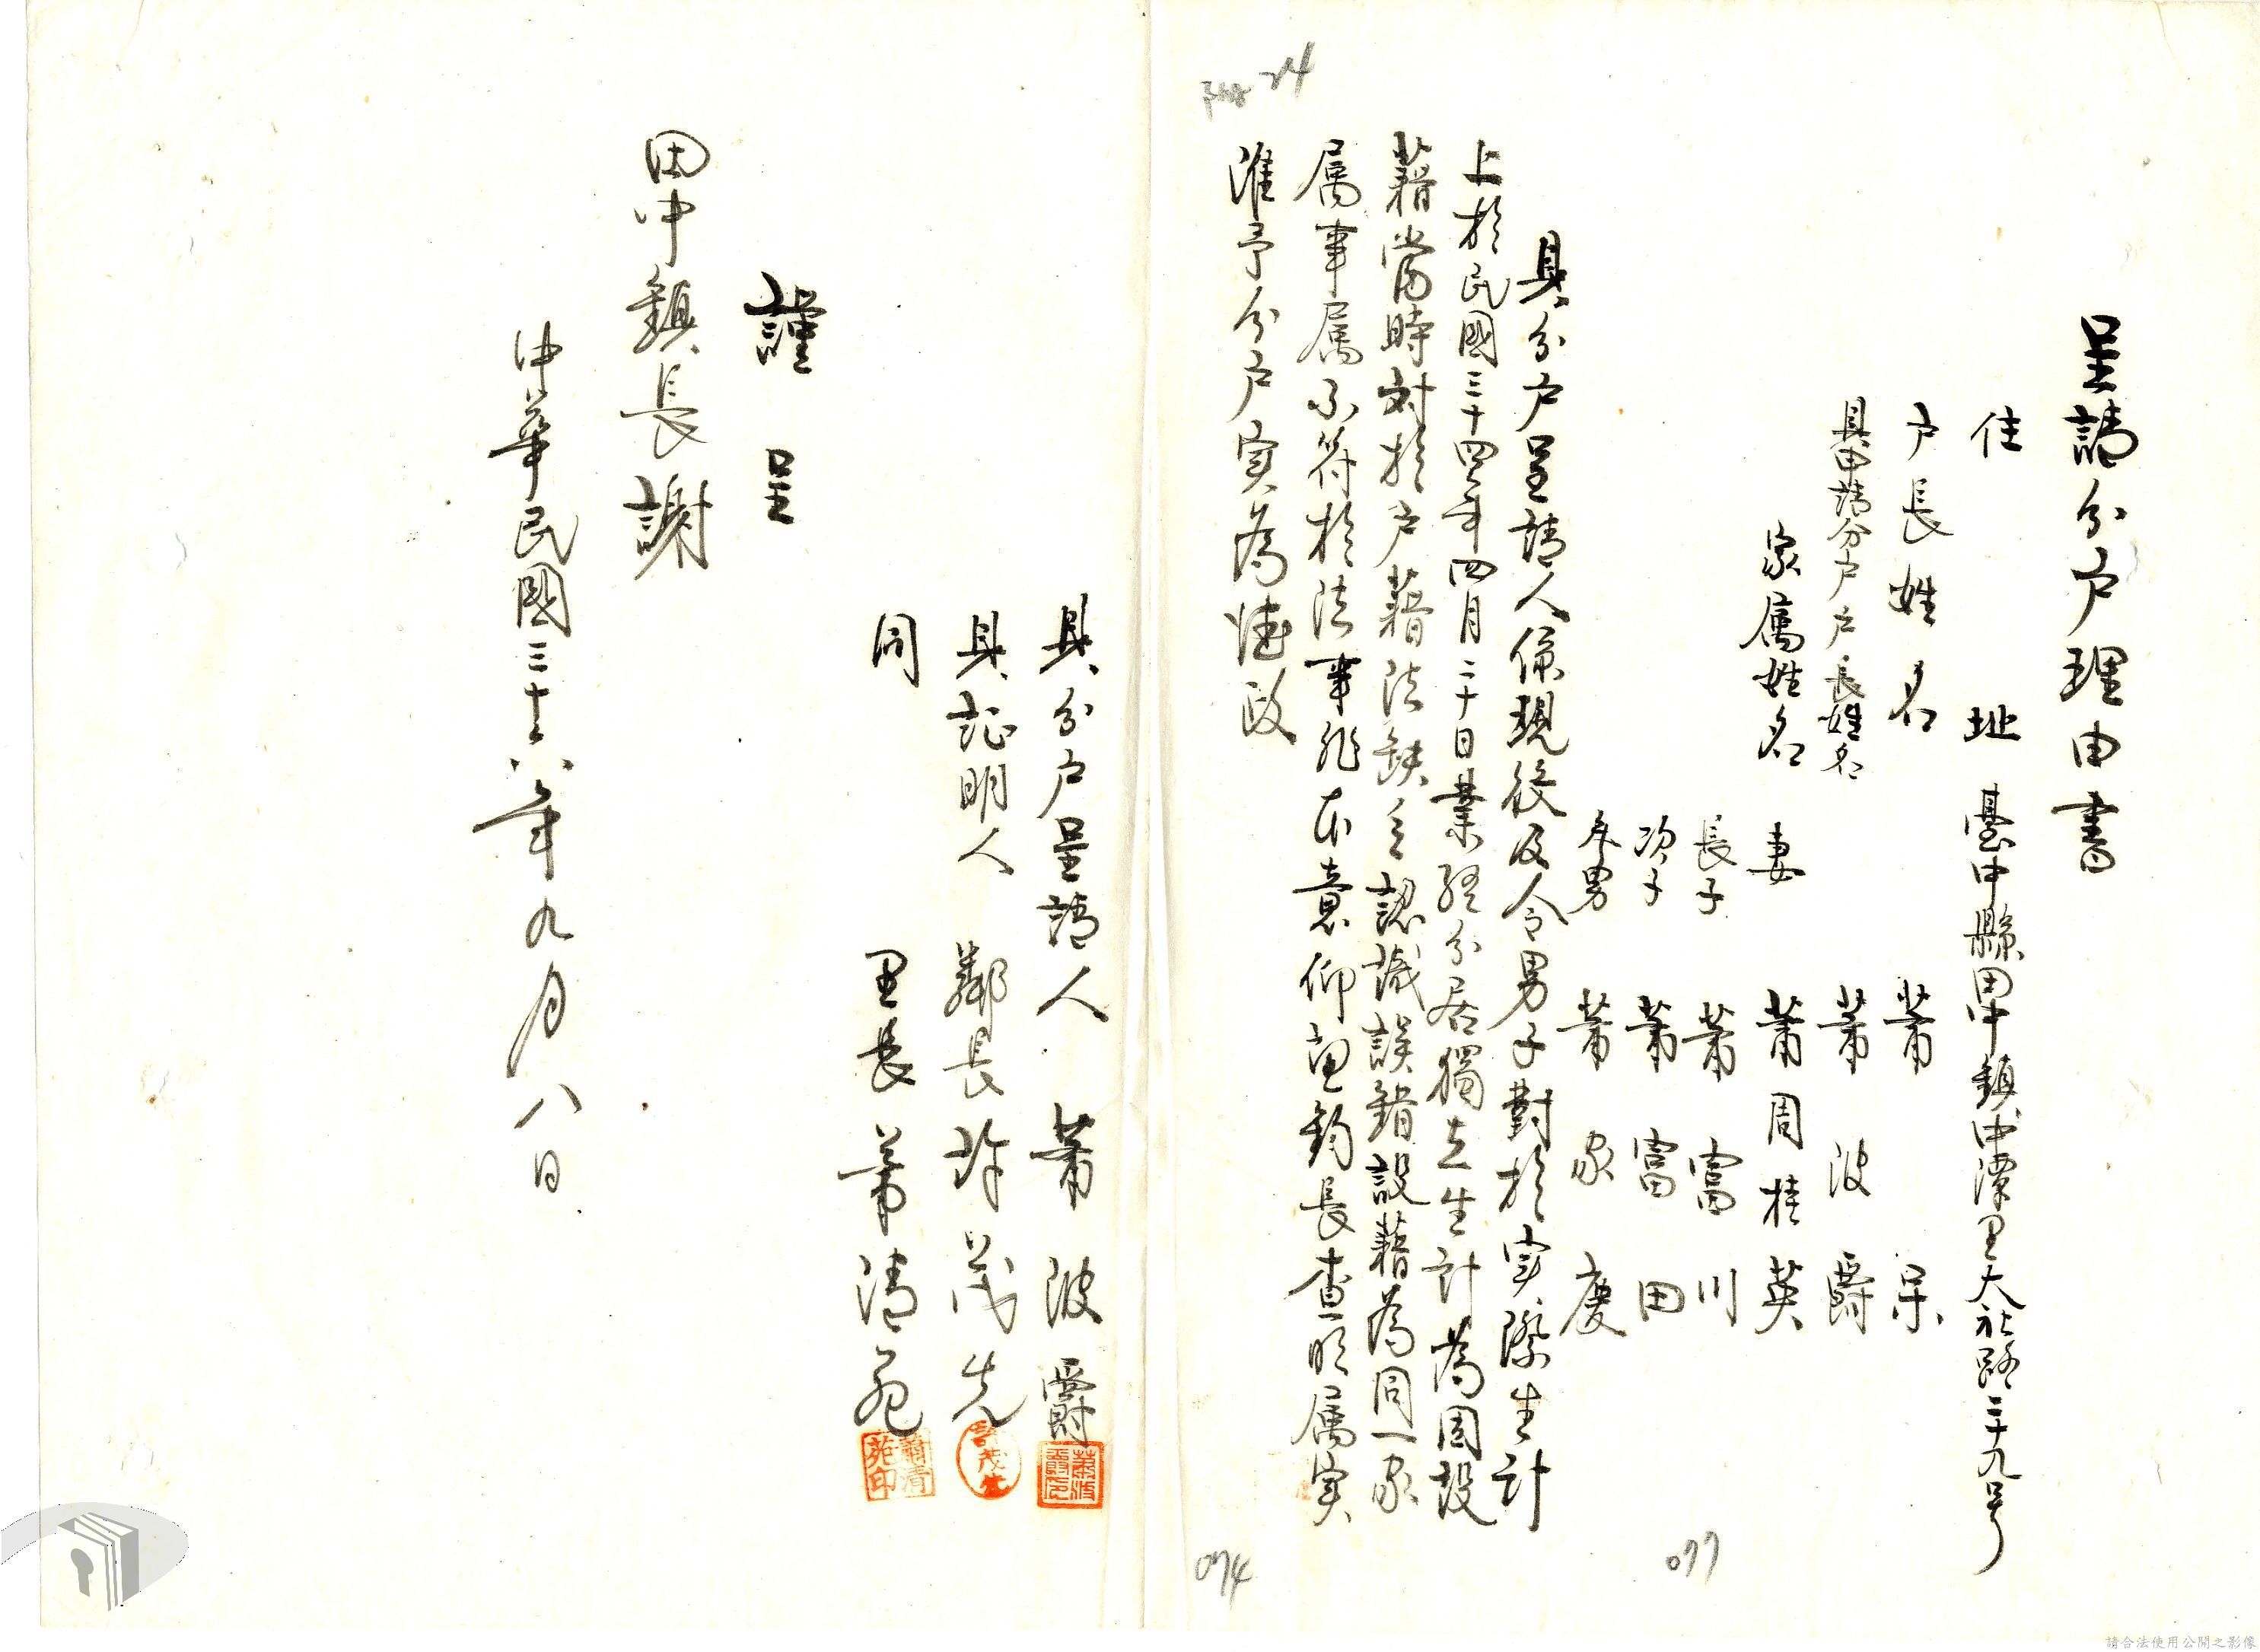 呈請分户理由書
住址 臺中縣田中鎮中潭里大社路三十九号
户長姓名 萧呆
具申請分户户長姓名 萧波爵
家属姓名 妻 萧周桂英
長子 萧富川
次子 萧富田
叁男 萧家慶
具分户呈請人係現後及令男子對於实際生計
上於民國三十四年四月二十日業經分居獨立生計為因設
藉當時对於户藉法缺乏認識誤錯設藉為同一家
属事属不符於法事非本意仰懇鈞長查明属实
准予分户实為德政
具分户呈請人 萧波爵
具証明人 鄰長 許茂先
同 里長 萧清苑
謹呈
田中鎮長謝
中華民國三十六年九月八日
萧波爵印
許茂先
蕭清苑印
24
074
077
請合法使用公開之影像